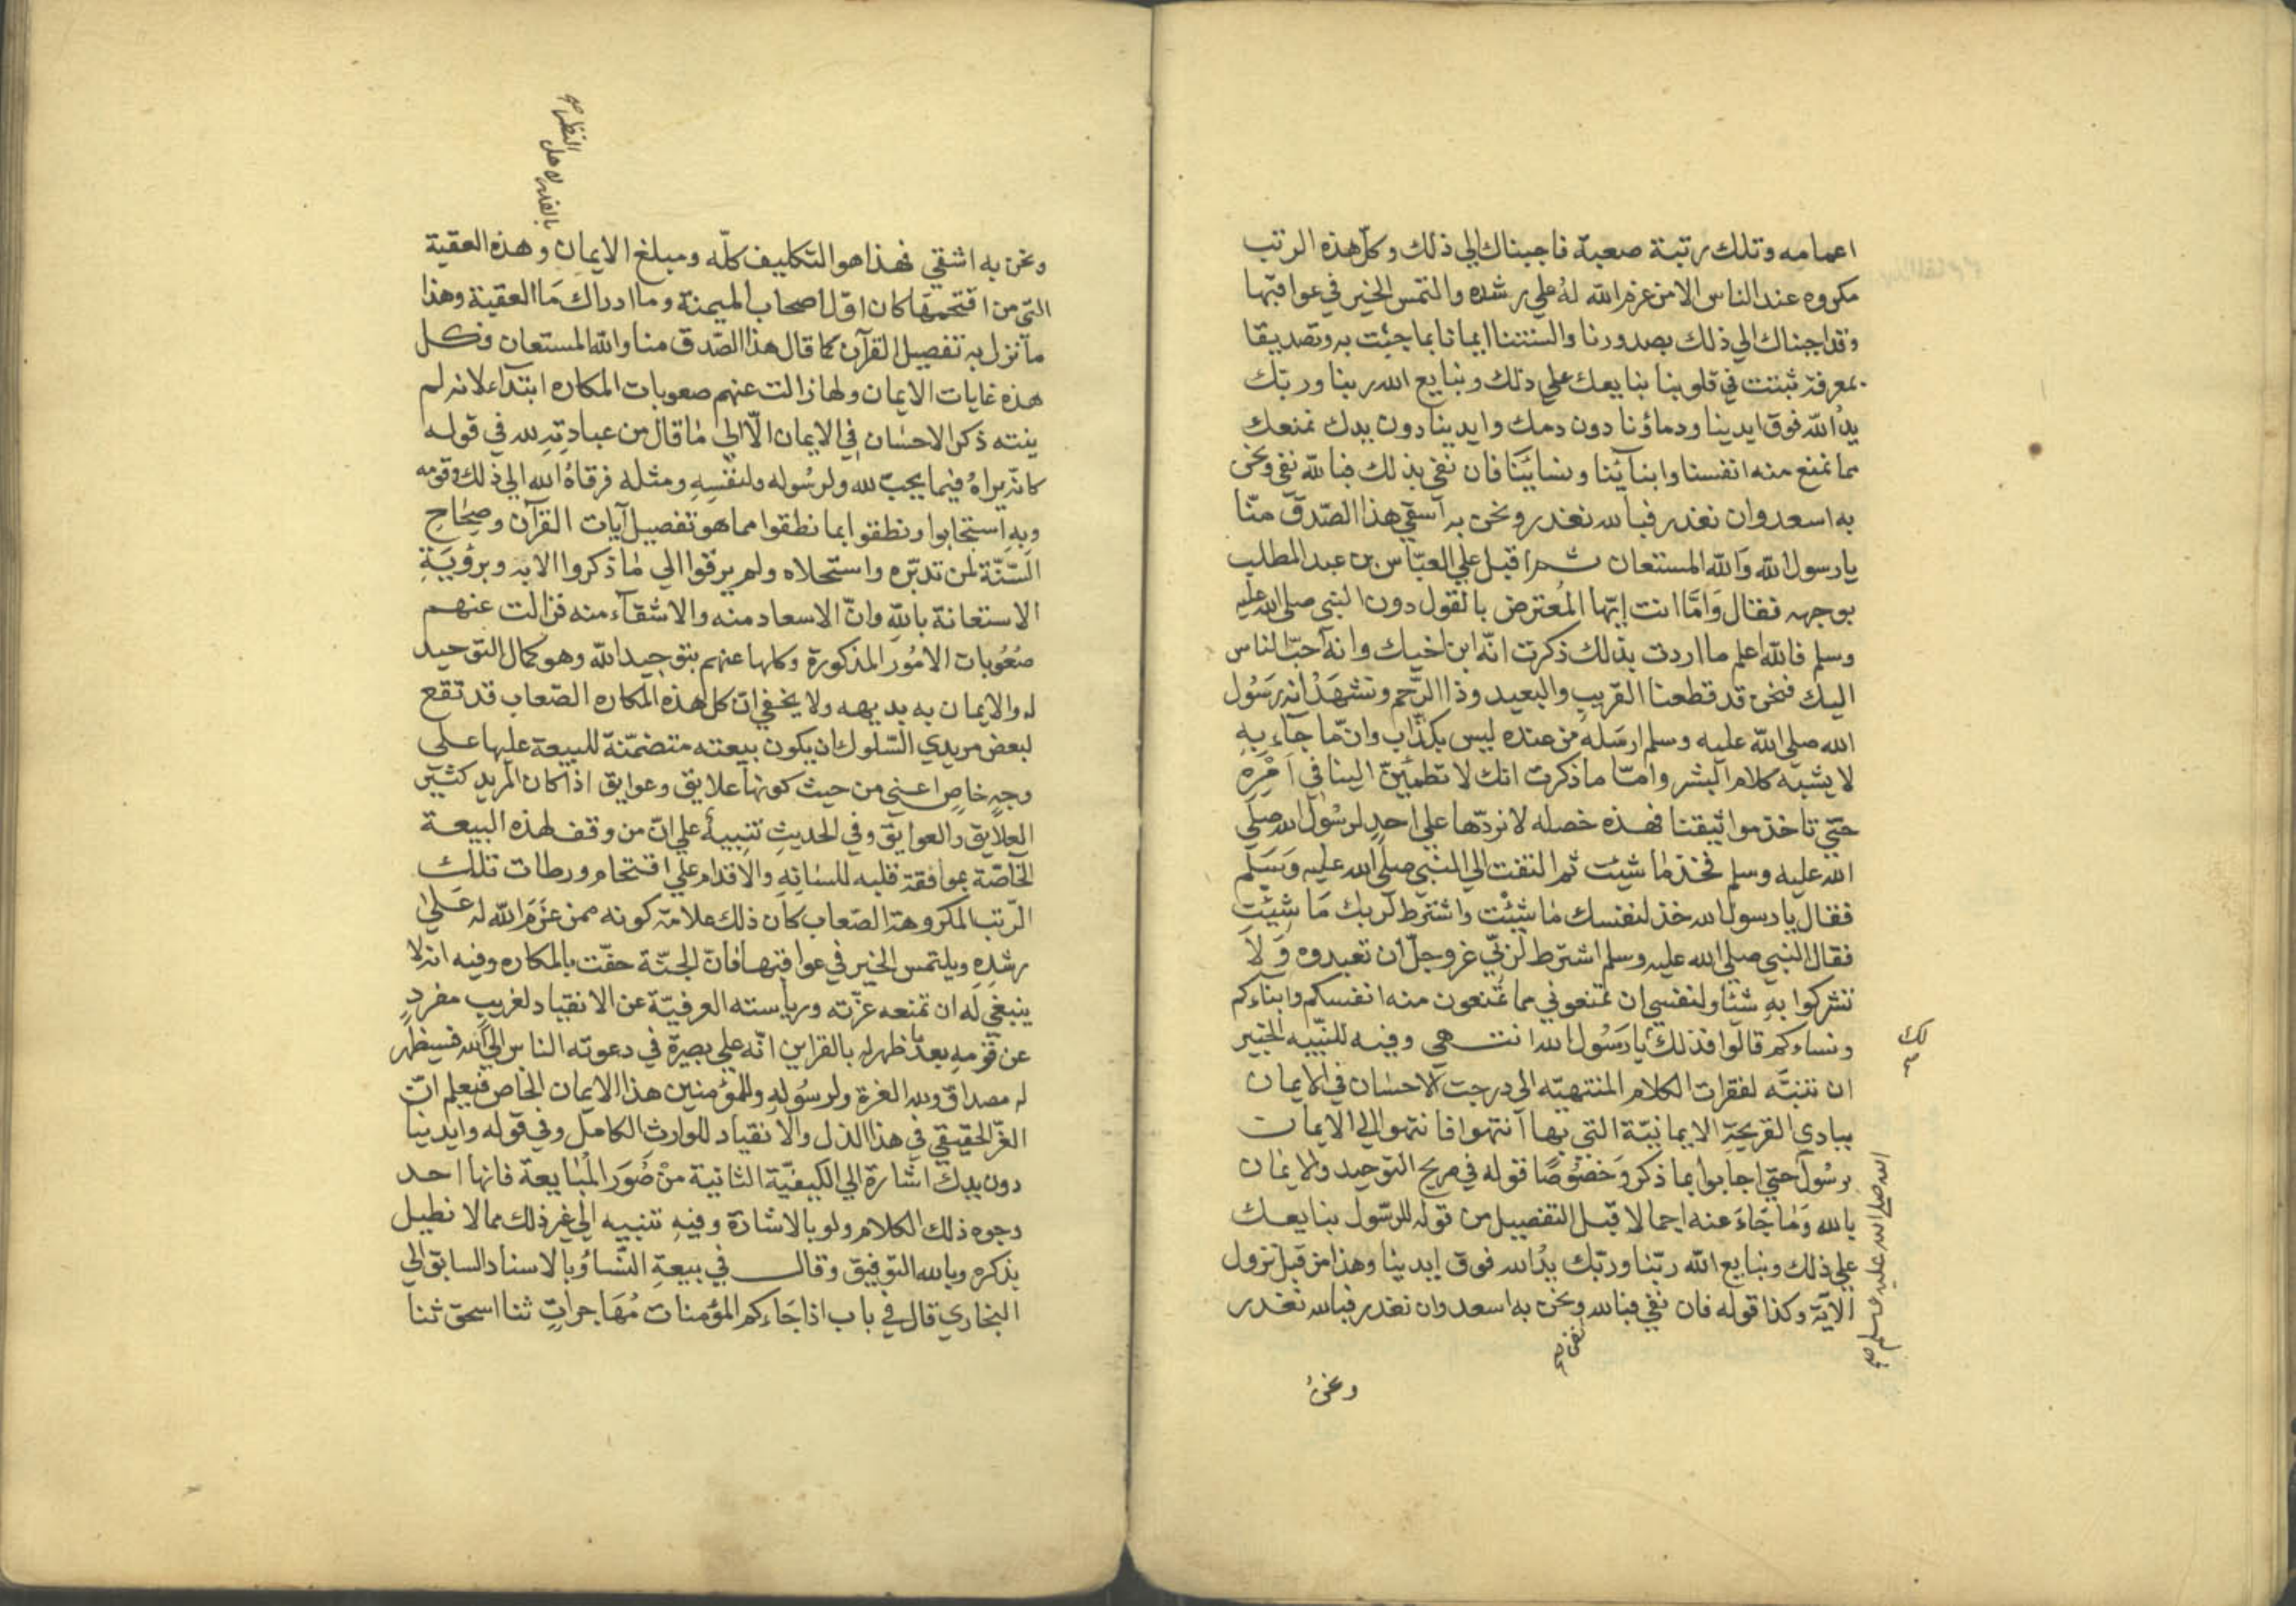 اعمامه وتلك رتبة صعبة فاجبناك الي ذلك وكل هذه الرتب
مكروه عند الناس الا من عزم الله له علي رشده والتمس الخير في عواقبها
وقد اجبناك الي ذلك بصدورنا والسنتنا ايمانا بما جئت به وتصديقا
بمعرفة ثبتت في قلوبنا بنا يعك علي ذلك ونبايع الله ربنا وربك
يد الله فوق ايدينا ودماؤنا دون دمك وايدينا دون يدك نمنعك
مما نمنع منه انفسنا وابنآئنا ونسايئنا فان نفي بذلك فبالله نفي ونحن
به اسعد وان نغدر فبالله نغدر ونحن به آسقي هذا الصّدق منّا
يا رسول الله وَالله المستعان ثمر اقبل علي العبّاس بن عبد المطلب
بوجهه فقال وَامَّا انت ايّها المُعترض بالقول دون النبي صلي الله عليه
وسلم فالله اعلم ما اردت بذلك ذكرت انّه ابن اخيك وانه احبّ الناس
اليك فنحن قد قطعنا القريب والبعيد وذا الرَّحم ونشهَدُ انه رَسُول
الله صلي الله عليه وسلم ارسَله من عنده ليس بكذّاب وانّ ما جآء به
لا يشبه كلام البشر وامّا ما ذكرت انك لا تطمئنّ الينا في اَمْرِه
حتّي تاخذ مواثيقنا فهذه خصله لا نردّها علي احدٍ لرسُول الله صلي
الله عليه وسلم فخذ ما شيئت ثم التفت الي النبّي صلي الله عليه وَسَلّم
فقال يا رسول الله خذ لنفسك ما شئْت واشترط لربك مَا شِئْت
فقال النبي صلي الله عليه وسلم اشترط لربّي عز وجلّ ان تعبدوه وَلَا
تشركوا بهِ شئا ولنفسي ان تمنعوني مما تمنعون منه انفسكم وابناءكم
ونساءكم قالوا فذلك يا رَسُول الله انتهي وفيه للنّبيه الخبير
لك صح
ان تنبَّه لفقرات الكلام المنتهيّه الي درجت الاحسَان في الايمان
ببادي القريحة الايمانيّة التي بها آنتهوا فانتهوا الي الايمان
برسُول حتي اجابوا بما ذكر وَخصُوصًا قوله في صريح التوحيد والايمان
الله صلي الله عليه وسلم صح
بالله وَمَا جَاءَ عنه اجمالا قبل التفصيل من قوله للرّسول بنا يعك
علي ذلك ونبايع الله ربّنا وربّك يدُ الله فوق ايدينا وهذا من قبل نزول
الآيَة وكذا قوله فان نفي فبالله ونحن به اسعد وان نغدر فبالله نغدر
ونحن
بالقدر لاهل النظر صح
ونحن به اشقي فهذا هو التكليف كلّه ومبلغ الايمان وهذه العقبة
التّي من اقتحمهَا كان اوّل اصحاب الميمنة وما ادراك مَا العقبة وهذا
مآنزل به تفصيل القرآن كما قال هذا الصّدق منا والله المستعان فكل
هذه غايات الايمان ولها زالت عنهم صعوبات المكاره ابتدآء لانه لم
ينته ذكر الاحسَان في الايمان الّا الي مَا قال من عبادتِهِ لله في قوله
كانّه يراهُ فيما يحبّ لله ولرسُوله ولنفسِهِ ومثله فرقاهُ الله الي ذلك وقومه
وبِهِ استجابوا ونطقوا بما نطقوا مما هو تفصيل آيات القرآن وصِحَاح
السّنّة لمن تدبّره واستحلاه ولم يرقوا الي مَا ذكروا الا به وبرؤيَةِ
الاستعانة بالله وانّ الاسعاد منه والاشقآء منه فزالت عنهم
صُعُوبات الامُور المذكورة وكلها عنهم بتوحيد الله وهو كمال التوحيد
له والايمان به بديهه ولا يخفي انّ كل هذه المكاره الصّعاب قد تقع
لبعض مريدي السّلوك ان يكون بيعته متضمّنة للبيعة عليها علي
وجهٍ خاصٍ اعني من حيث كونها علايق وعوايق اذا كان المريد كثير
العلايق والعوايق وفي الحديث تنبيهٌ علي انّ من وقف لهذه البيعة
الخاصّة بموافقة قلبه للسانِه والاقدام علي اقتحام ورطات تلك
الرّتب المكروهة الصّعاب كان ذلك علامة كونه ممن عزَمَ الله له عَلي
رشدِهِ ويلتمس الخير في عواقبها فان الجنّة حفّت بالمكاره وفيه انه لا
ينبغي له ان تمنعه عزّته ورياسته العرفيّة عن الانقياد لغريبٍ مفردٍ
عن قومهِ بعد ما ظهر له بالقراين انّه علي بصيرة في دعوته الناس الي الله فسيظهر
له مصداق ولله العزة ولرسُولِهِ وللمؤمنين هذا الايمان الخاص فيعلم انّ
العزّ الحقيقي في هذا الذل والانقياد للوارث الكامل وفي قوله وايدينا
دون يدك اشارة الي الكيفيّة الثانية منْ صُوَر المُبَايعة فانها احد
وجوه ذلك الكلام ولو بالاشارة وفيهِ تنبيه الي غير ذلك مما لا نطيل
بذكره وبالله التوفيق وقال في بيعةِ النّسَاءُ وبالاسناد السابق الي
البخاري قال في باب اذا جَاءَكم المؤمنات مُهَاجراتٍ ثنا اسحق ثنا